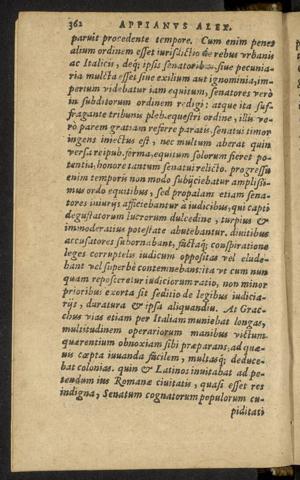 362 APPIANVS ALEX.
paruit procedente tempore. Cum enim penes
alium ordinem esset iurisdictio de rebus vrbanis
ac Italicis, deq; ipsis senatoribus, siue pecunia-
ria mulcta esset siue exilium aut ignominia, im-
pertum videbatur iam equitum, senatores verò
in subditorum ordinem redigi: atque ita suf-
fragante tribunis pleb. equestri ordine, illiv ve-
rò parem gratiam referre paratis, senatui timor
ingens iniectus est, nec multum aberat quin
versa reipub. forma, equitum solorum fieret po-
tentia, honore tantum senatui relicto. progressu
enim temporis non modo subijciebatur amplissi-
mus ordo equitibus, sed propalam etiam sena-
tores iniurijs afficiebantur à iudicibus, qui capti
degustatorum lucrorum dulcedine, turpius &
immoderatius potestate abutebantur. diuitibus
accusatores subornabant, factaq; conspiratione
leges corruptelis iudicum oppositas vel elude-
bant vel superbè contemnebant: ita vt cum nun
quam reposceretur iudiciorum ratio, non minor
prioribus exorta sit seditio de legibus iudicia-
rijs, duratura & ipsa aliquandiu. At Grac-
chus vias etiam per Italiam muniebat longas,
multitudinem operariorum manibus victum
quærentium obnoxiam sibi præparans, ad quæ-
uis cœpta iuuanda facilem, multasq; deduce-
bat colonias. quin & Latinos inuitabat ad pe-
tendum ius Romanæ ciuitatis, quasi esset res
indigna, Senatum cognatorum populorum cu-
piditati